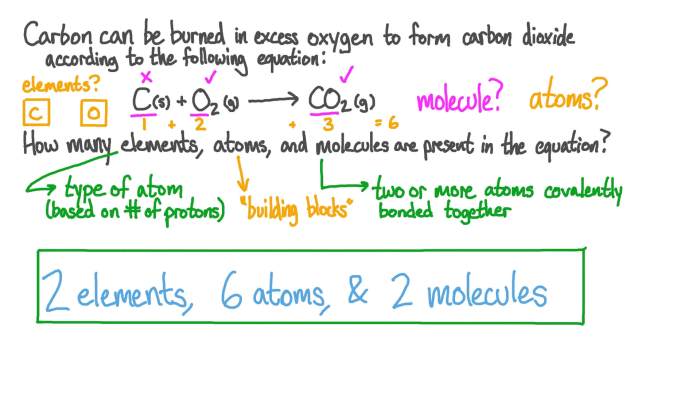 Carbon can be burned in excess oxygen to form carbon dioxide
according to the following equation:
elements?
x ✓ ✓
C O C(s) + O₂(g) ⟶ CO₂(g) molecule? atoms?
1 + 2 + 3 = 6
How many elements, atoms, and molecules are present in the equation?
type of atom
(based on # of protons)
"building blocks"
two or more atoms covalently
bonded together
2 elements, 6 atoms, & 2 molecules